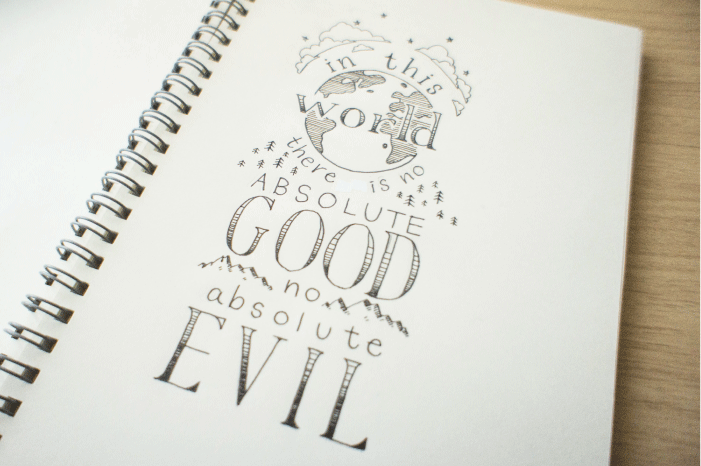 in this
world
there is no
ABSOLUTE
GOOD
no
absolute
EVIL